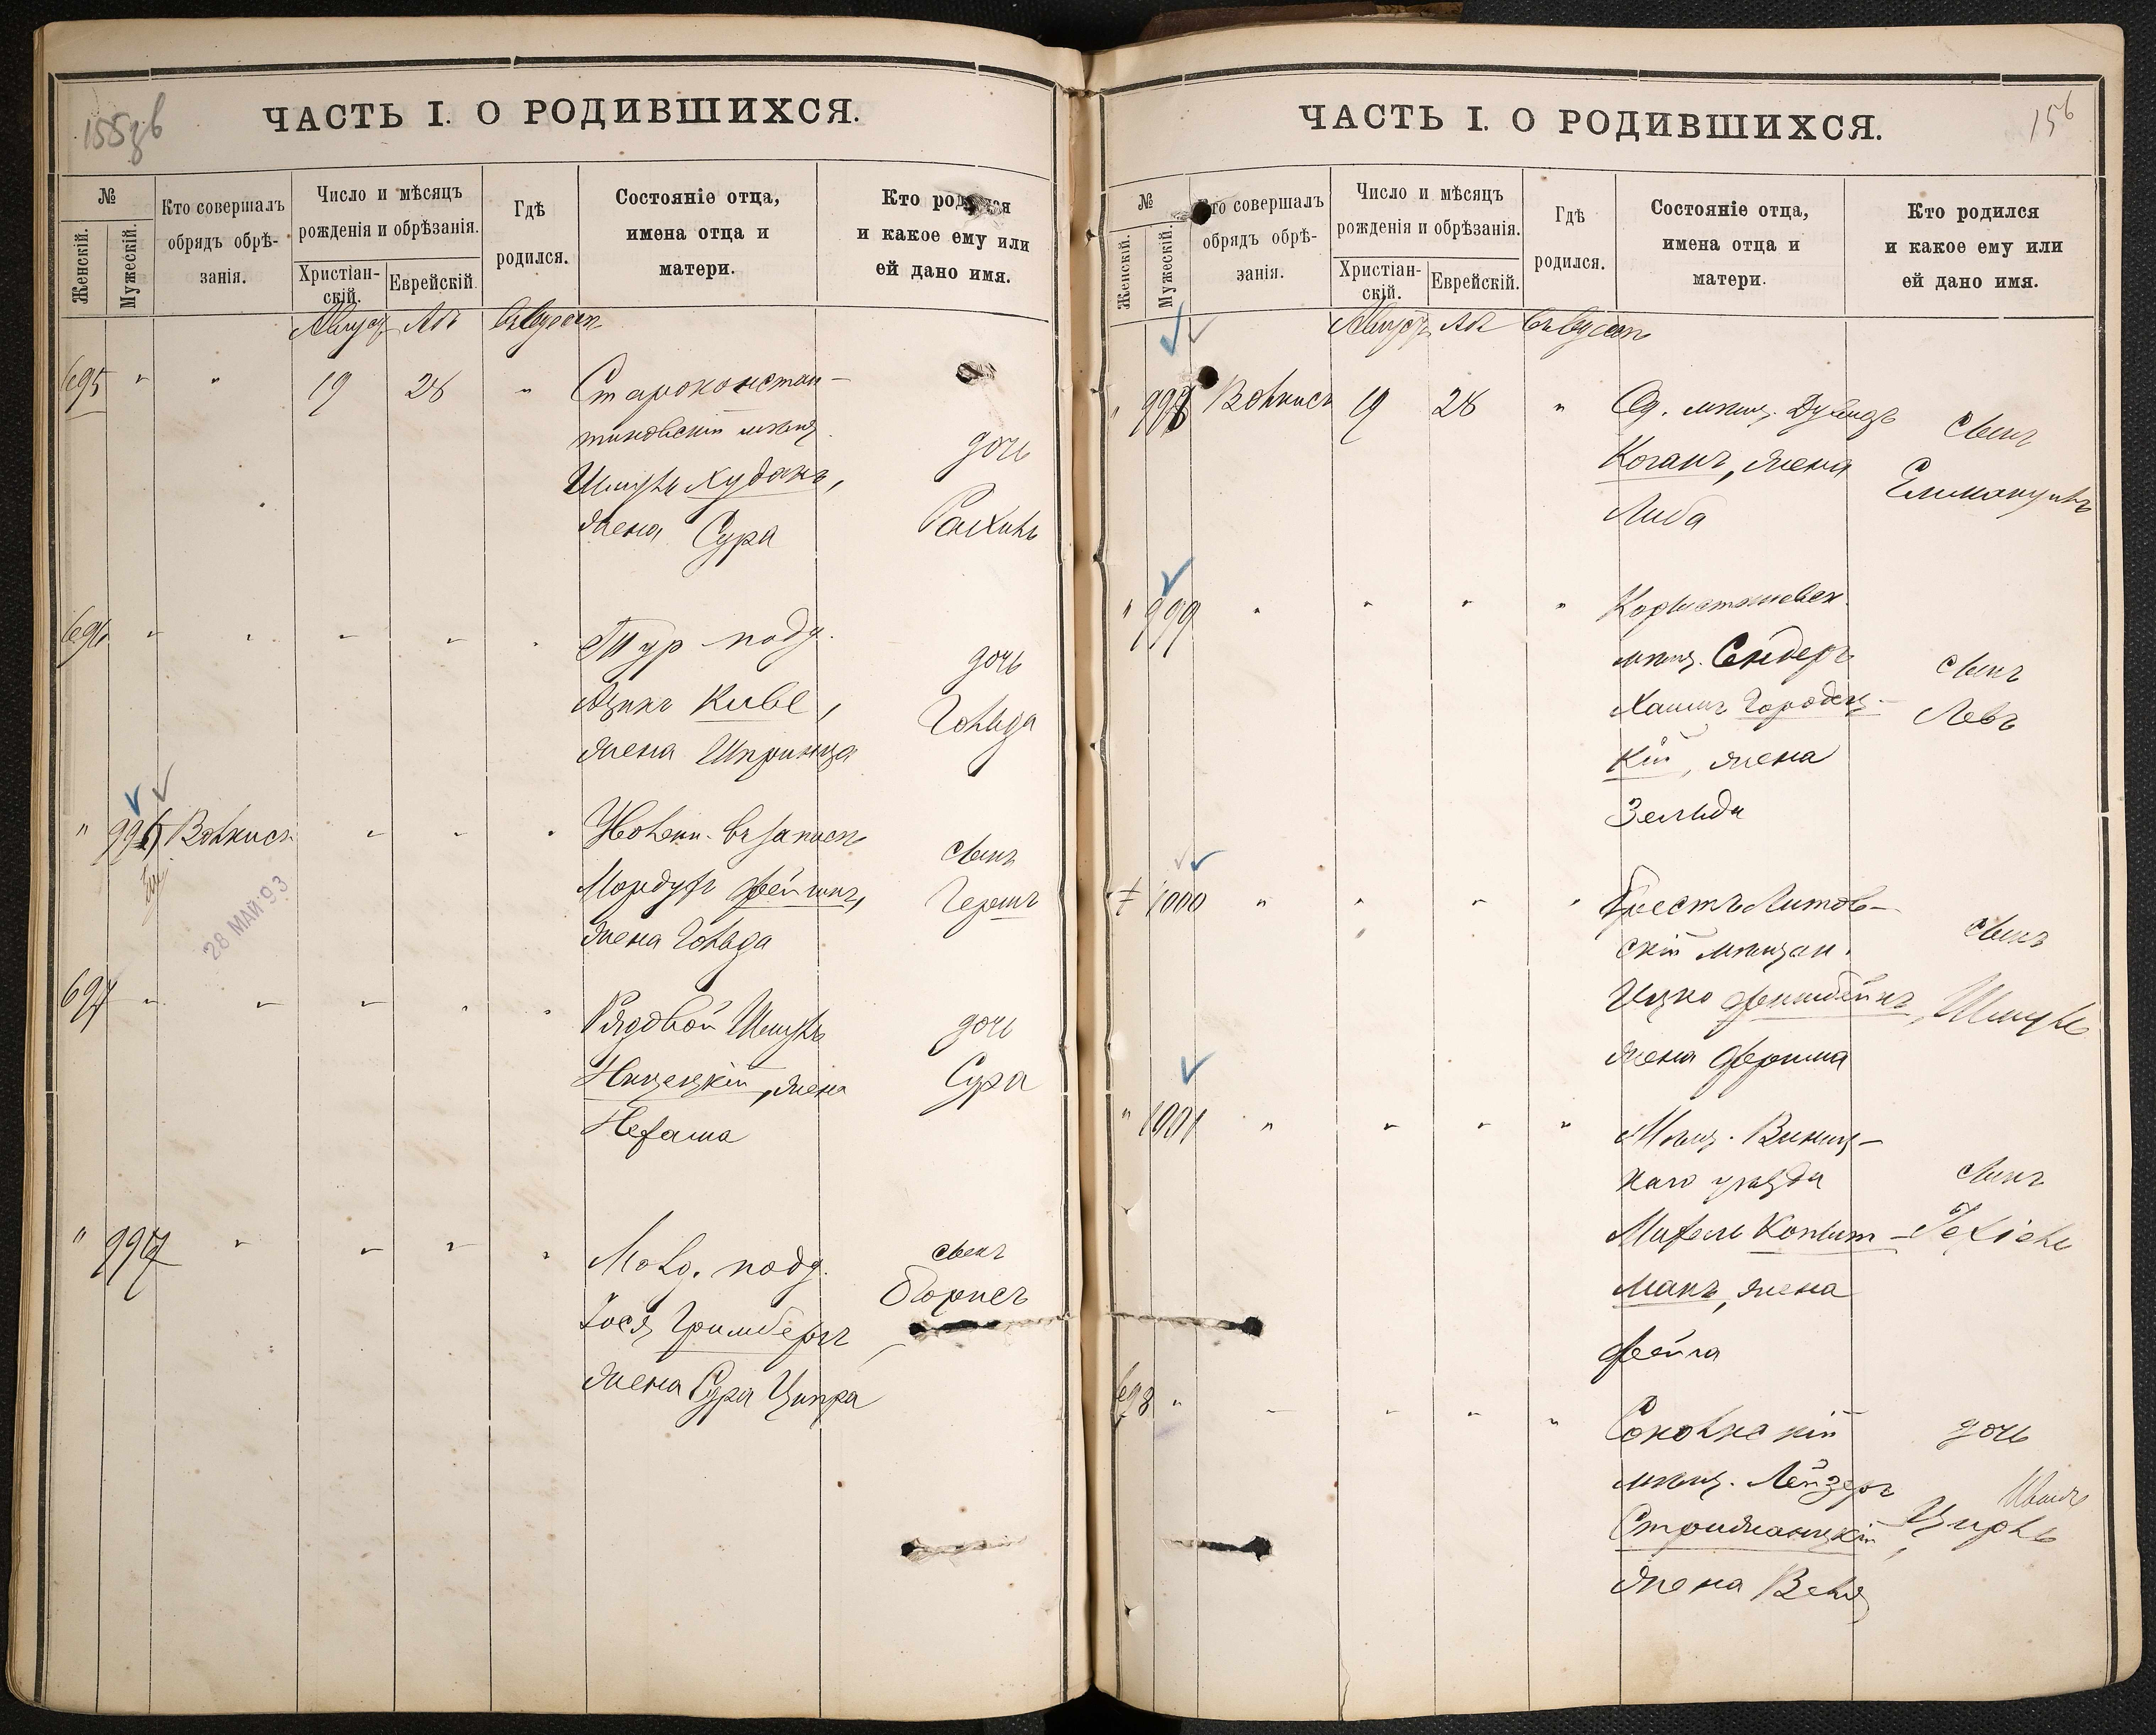 155
ЧАСТЬ I. О РОДИВШИХСЯ.
№
Женскій.
Мужескій.
Кто совершалъ
обрядъ обрѣ-
занія.
Число и мѣсяцъ
рожденія и обрѣзанія.
Христіан-
скій.
Еврейскій.
Гдѣ
родился.
Состояніе отца,
имена отца и
матери.
Кто родился
и какое ему или
ей дано имя.
Августъ Абъ
695 " " 19 28 " Староконстан-
тиновскій мѣщ.
Шмуль Худакъ,
жена Сура
дочь
Рахиль
696 " " " " " Тур. подд.
Ицикъ Киве,
жена Шпринца
дочь
Гольда
" 996 Волкисъ " " "
Мордухъ Фейгинъ,
жена Гольда
сынъ
Гершъ
28 МАЙ 93
697 " " " " " Рядовой Шмуль
жена
Нехама
дочь
Сура
" 997 " " " " Молд. подд.
Іось Гримбергъ
жена Сура Ципра
сынъ
Борисъ
156
ЧАСТЬ I. О РОДИВШИХСЯ.
№
Женскій.
Мужескій.
Кто совершалъ
обрядъ обрѣ-
занія.
Число и мѣсяцъ
рожденія и обрѣзанія.
Христіан-
скій.
Еврейскій.
Гдѣ
родился.
Состояніе отца,
имена отца и
матери.
Кто родился
и какое ему или
ей дано имя.
Августъ Абъ
" 998 Волкисъ 19 28 " Од. мѣщ. Дувидъ
Коганъ, жена
Либа
сынъ
" 999 " " " "
мѣщ. Сендеръ
Хаимъ Городец-
кій, жена
Зельда
сынъ
Левъ
1000 " " " " Брестъ-Литов-
скій мѣщан.
Ицко
жена Фрима
сынъ
Шмуль
" 1001 " " " " Мѣщ. Винниц-
каго уѣзда
Михель Копыт-
манъ, жена
Фейга
сынъ
Іехіель
698 " " " " " Сокольскій
мѣщ. Лейзеръ
жена Веля
дочь
Цирль